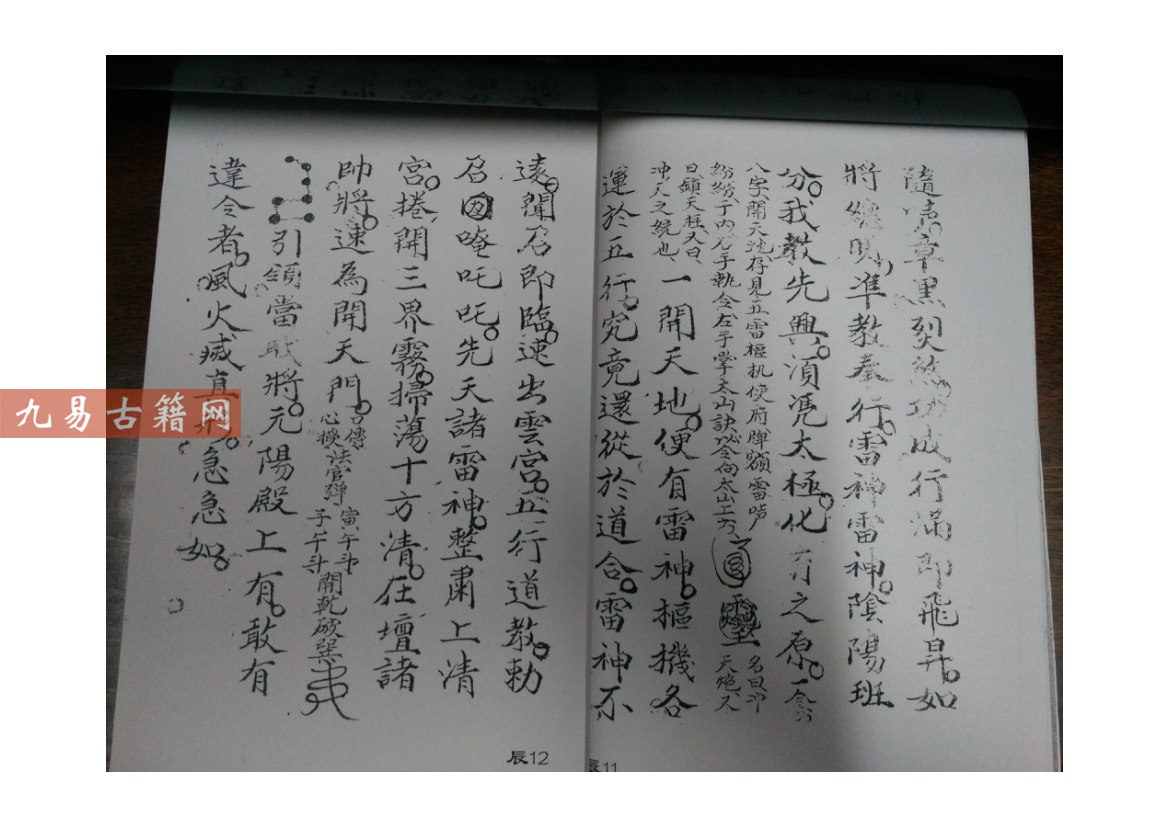 隨
章黑裂
成行滿即飛昇如
將總
準教奉行雷神雷神陰陽班
分我教先興須憑太極化
之原
八字開天
存見五雷樞机使府牌額雷
紛紛于內
手執令左手掌太山訣以令向太山上
名曰
天
又
曰鎖天柱又曰
冲天之統也
一開天地便有雷神樞機各
運於五行究竟還從於道合雷神不
遠聞召即臨速出雲宮五行道教勅
召
唵吒吒先天諸雷神整肅上清
宮捲開三界霧掃蕩十方清在壇諸
帥將速為開天門
傳
心授法官
寅午斗
子午斗
開乾破巽
引領當
將元陽殿上有敢有
違令者風火滅
急急如
辰12
辰11
九易古籍网